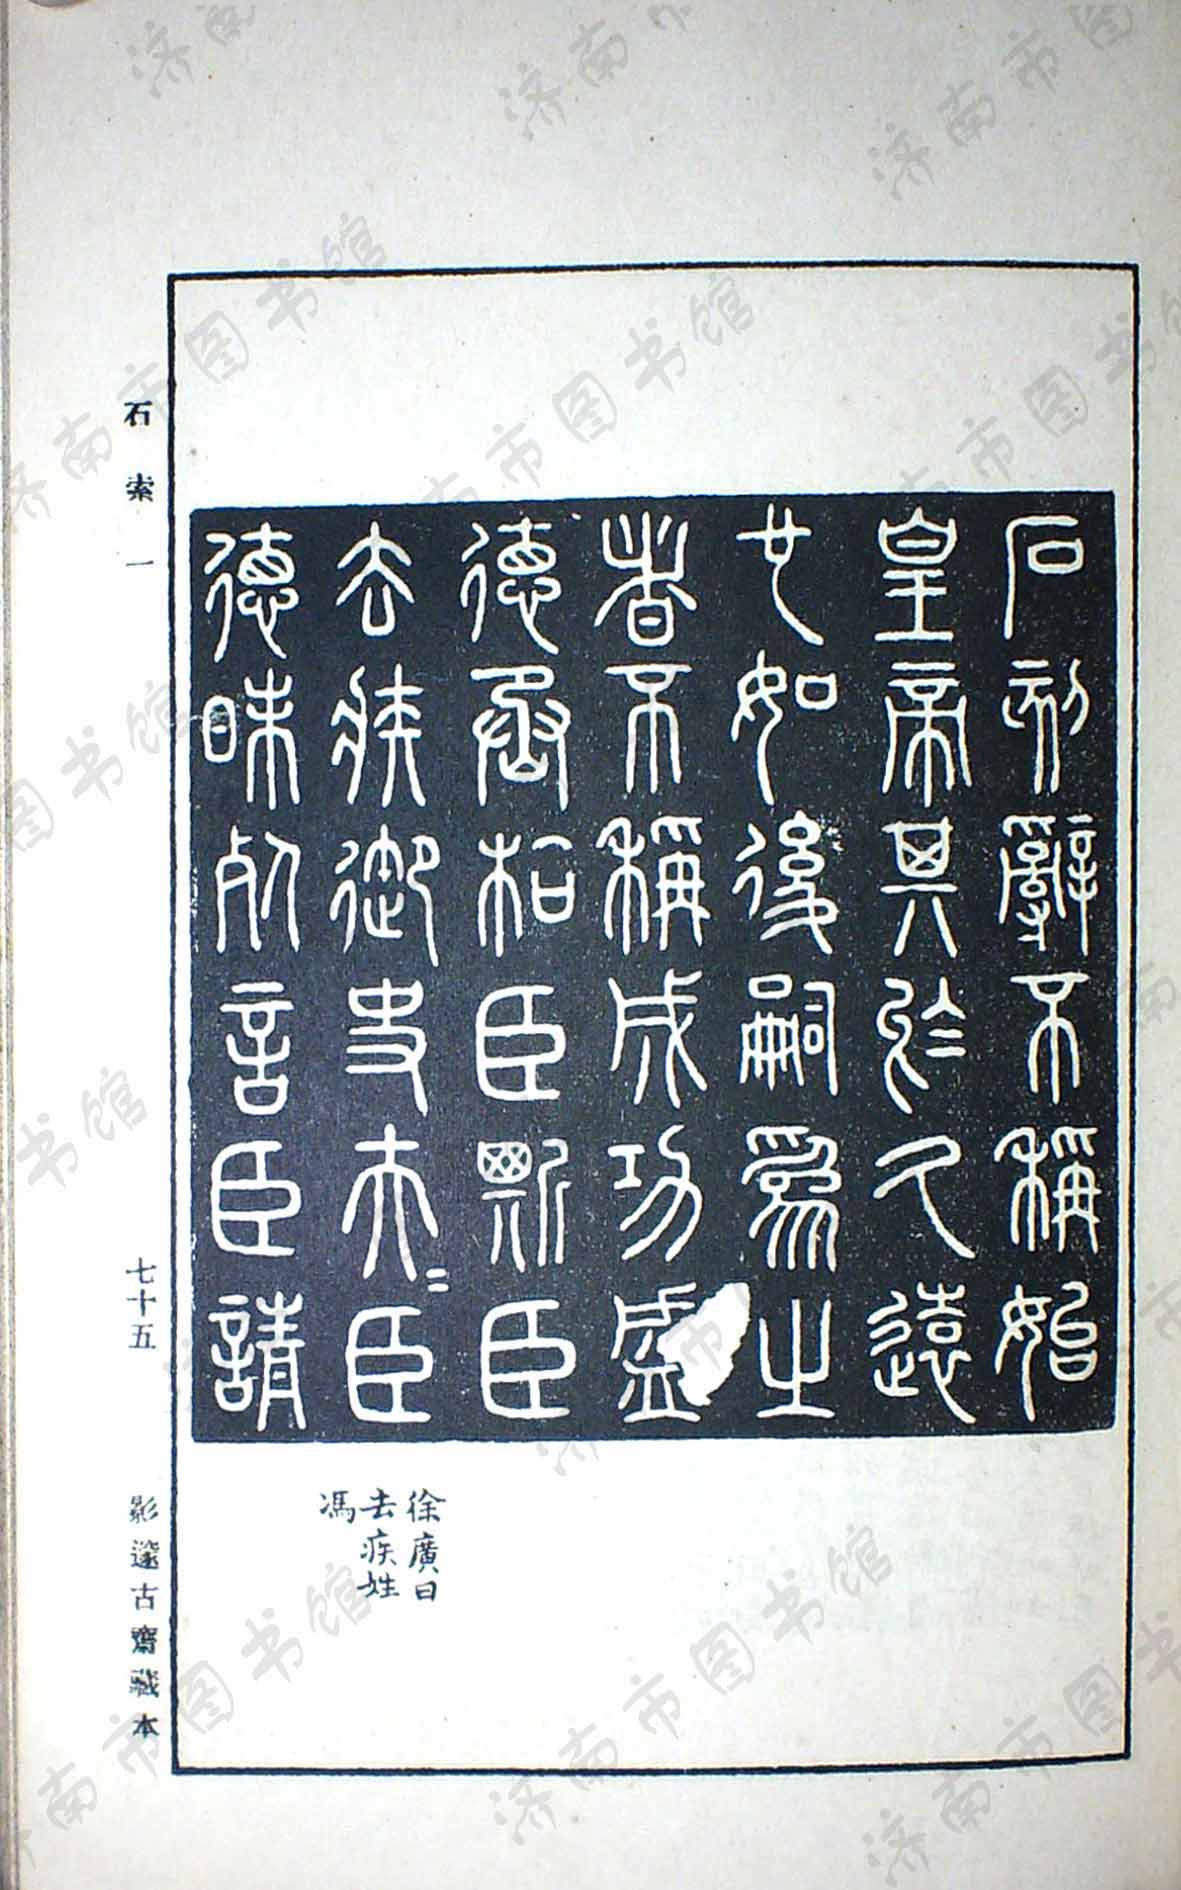 石刻辭不稱始
皇帝其於久遠
也如後嗣爲之
者不稱成功盛
德丞相臣斯臣
去疾御史夫=臣
德昧死言臣請
徐廣曰
去疾姓
馮
石索一
七十五
影邃古齋藏本
济南市图书馆